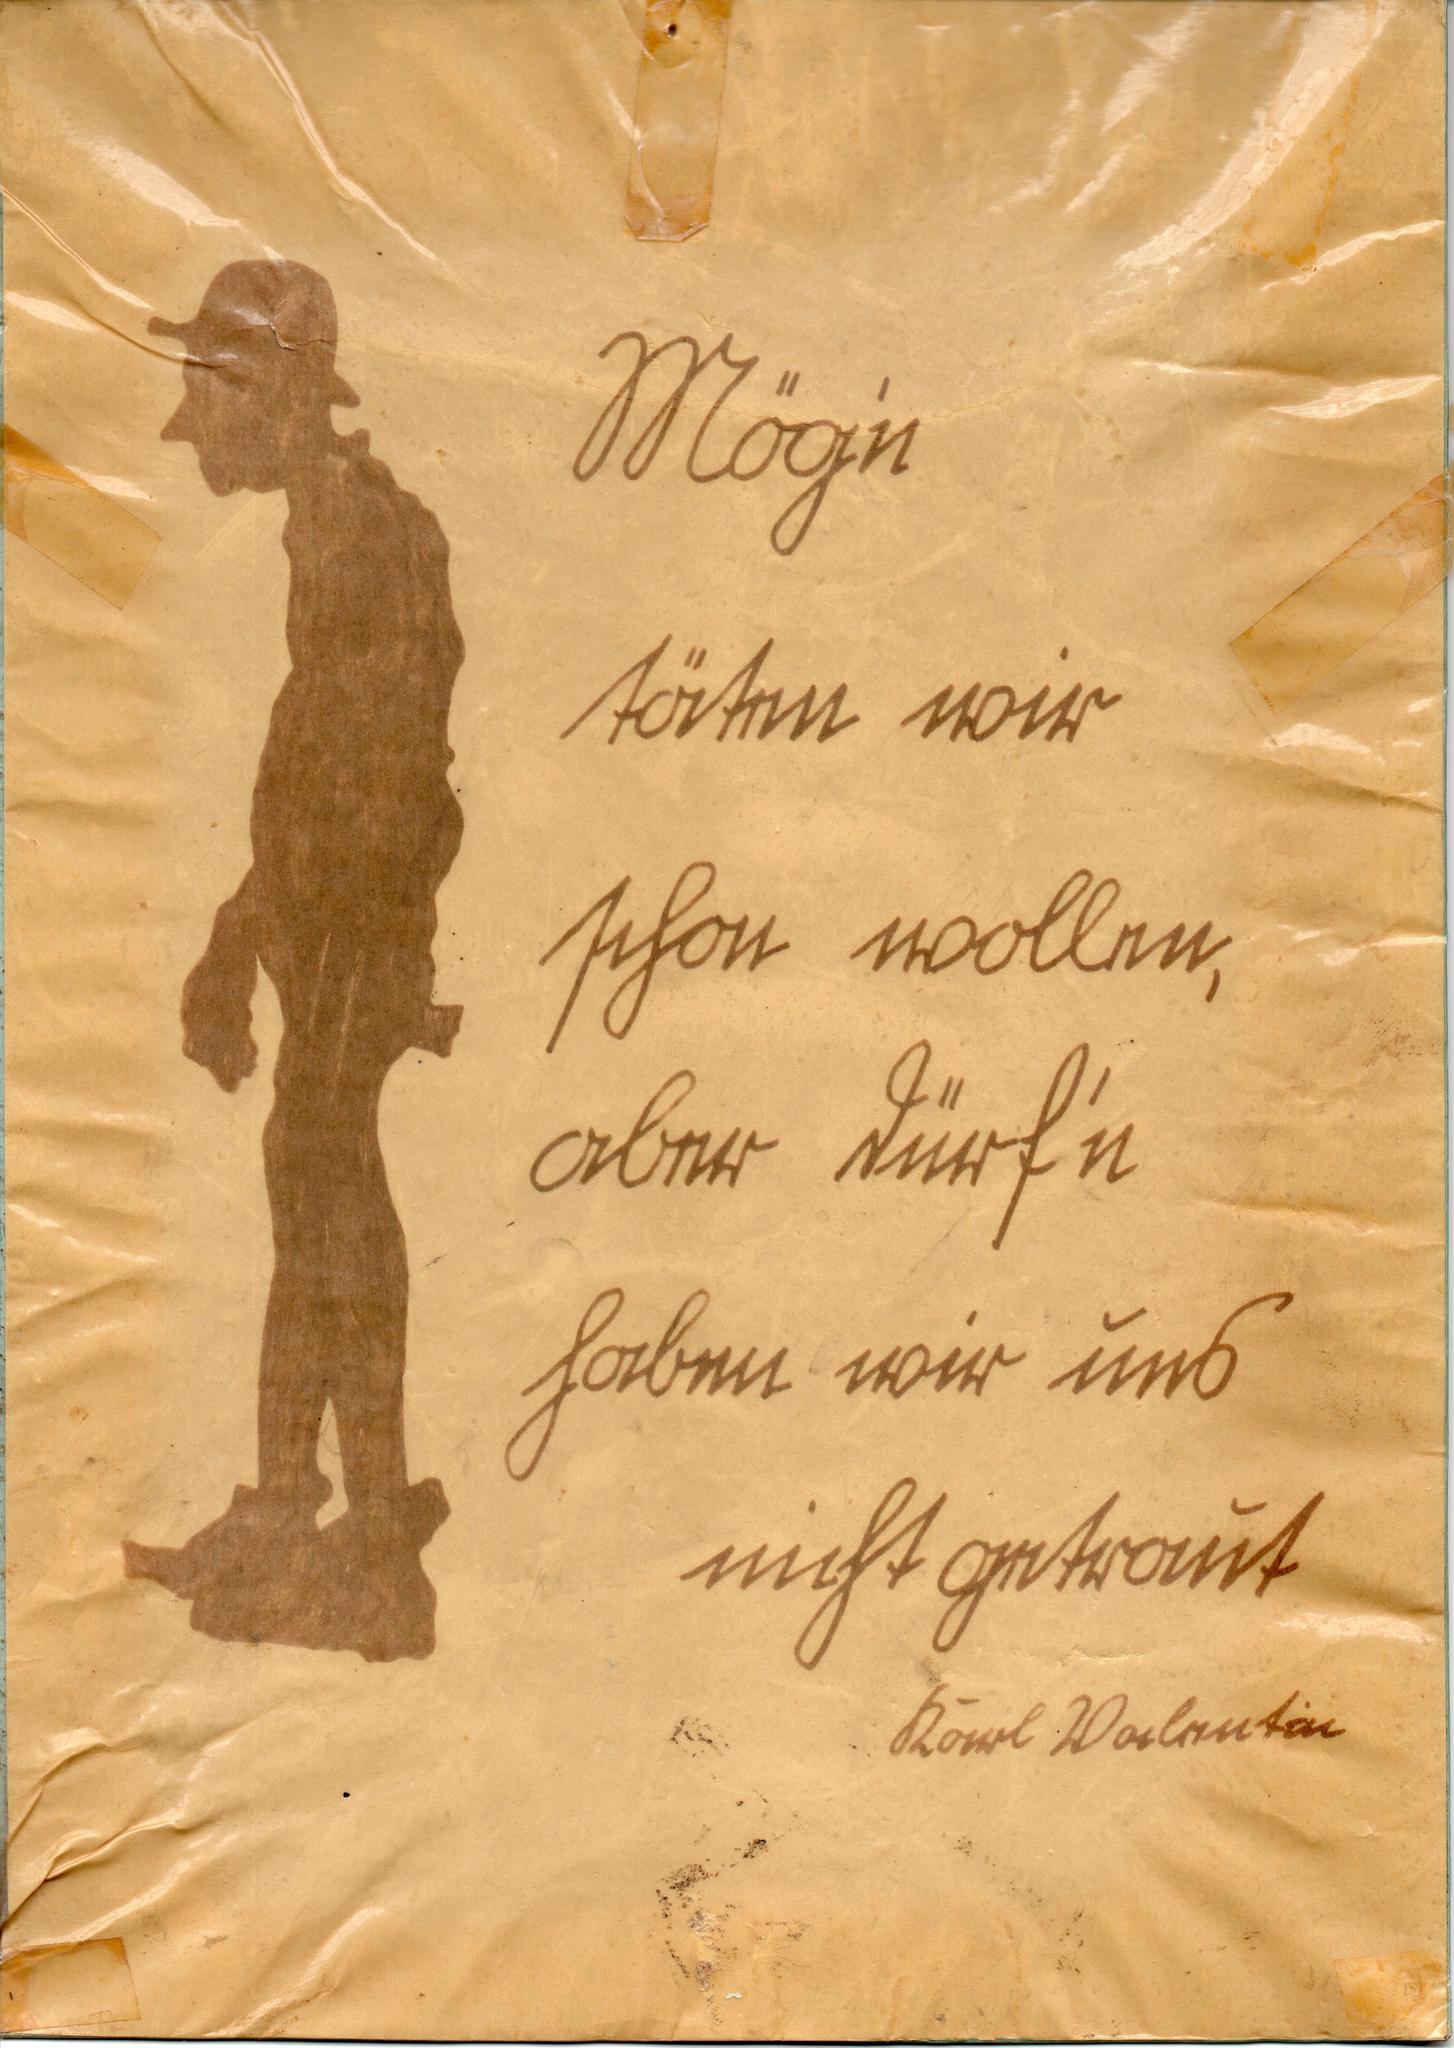 Mög'n
täten wir
schon wollen,
aber dürf'n
haben wir uns
nicht getraut
Karl Valentin